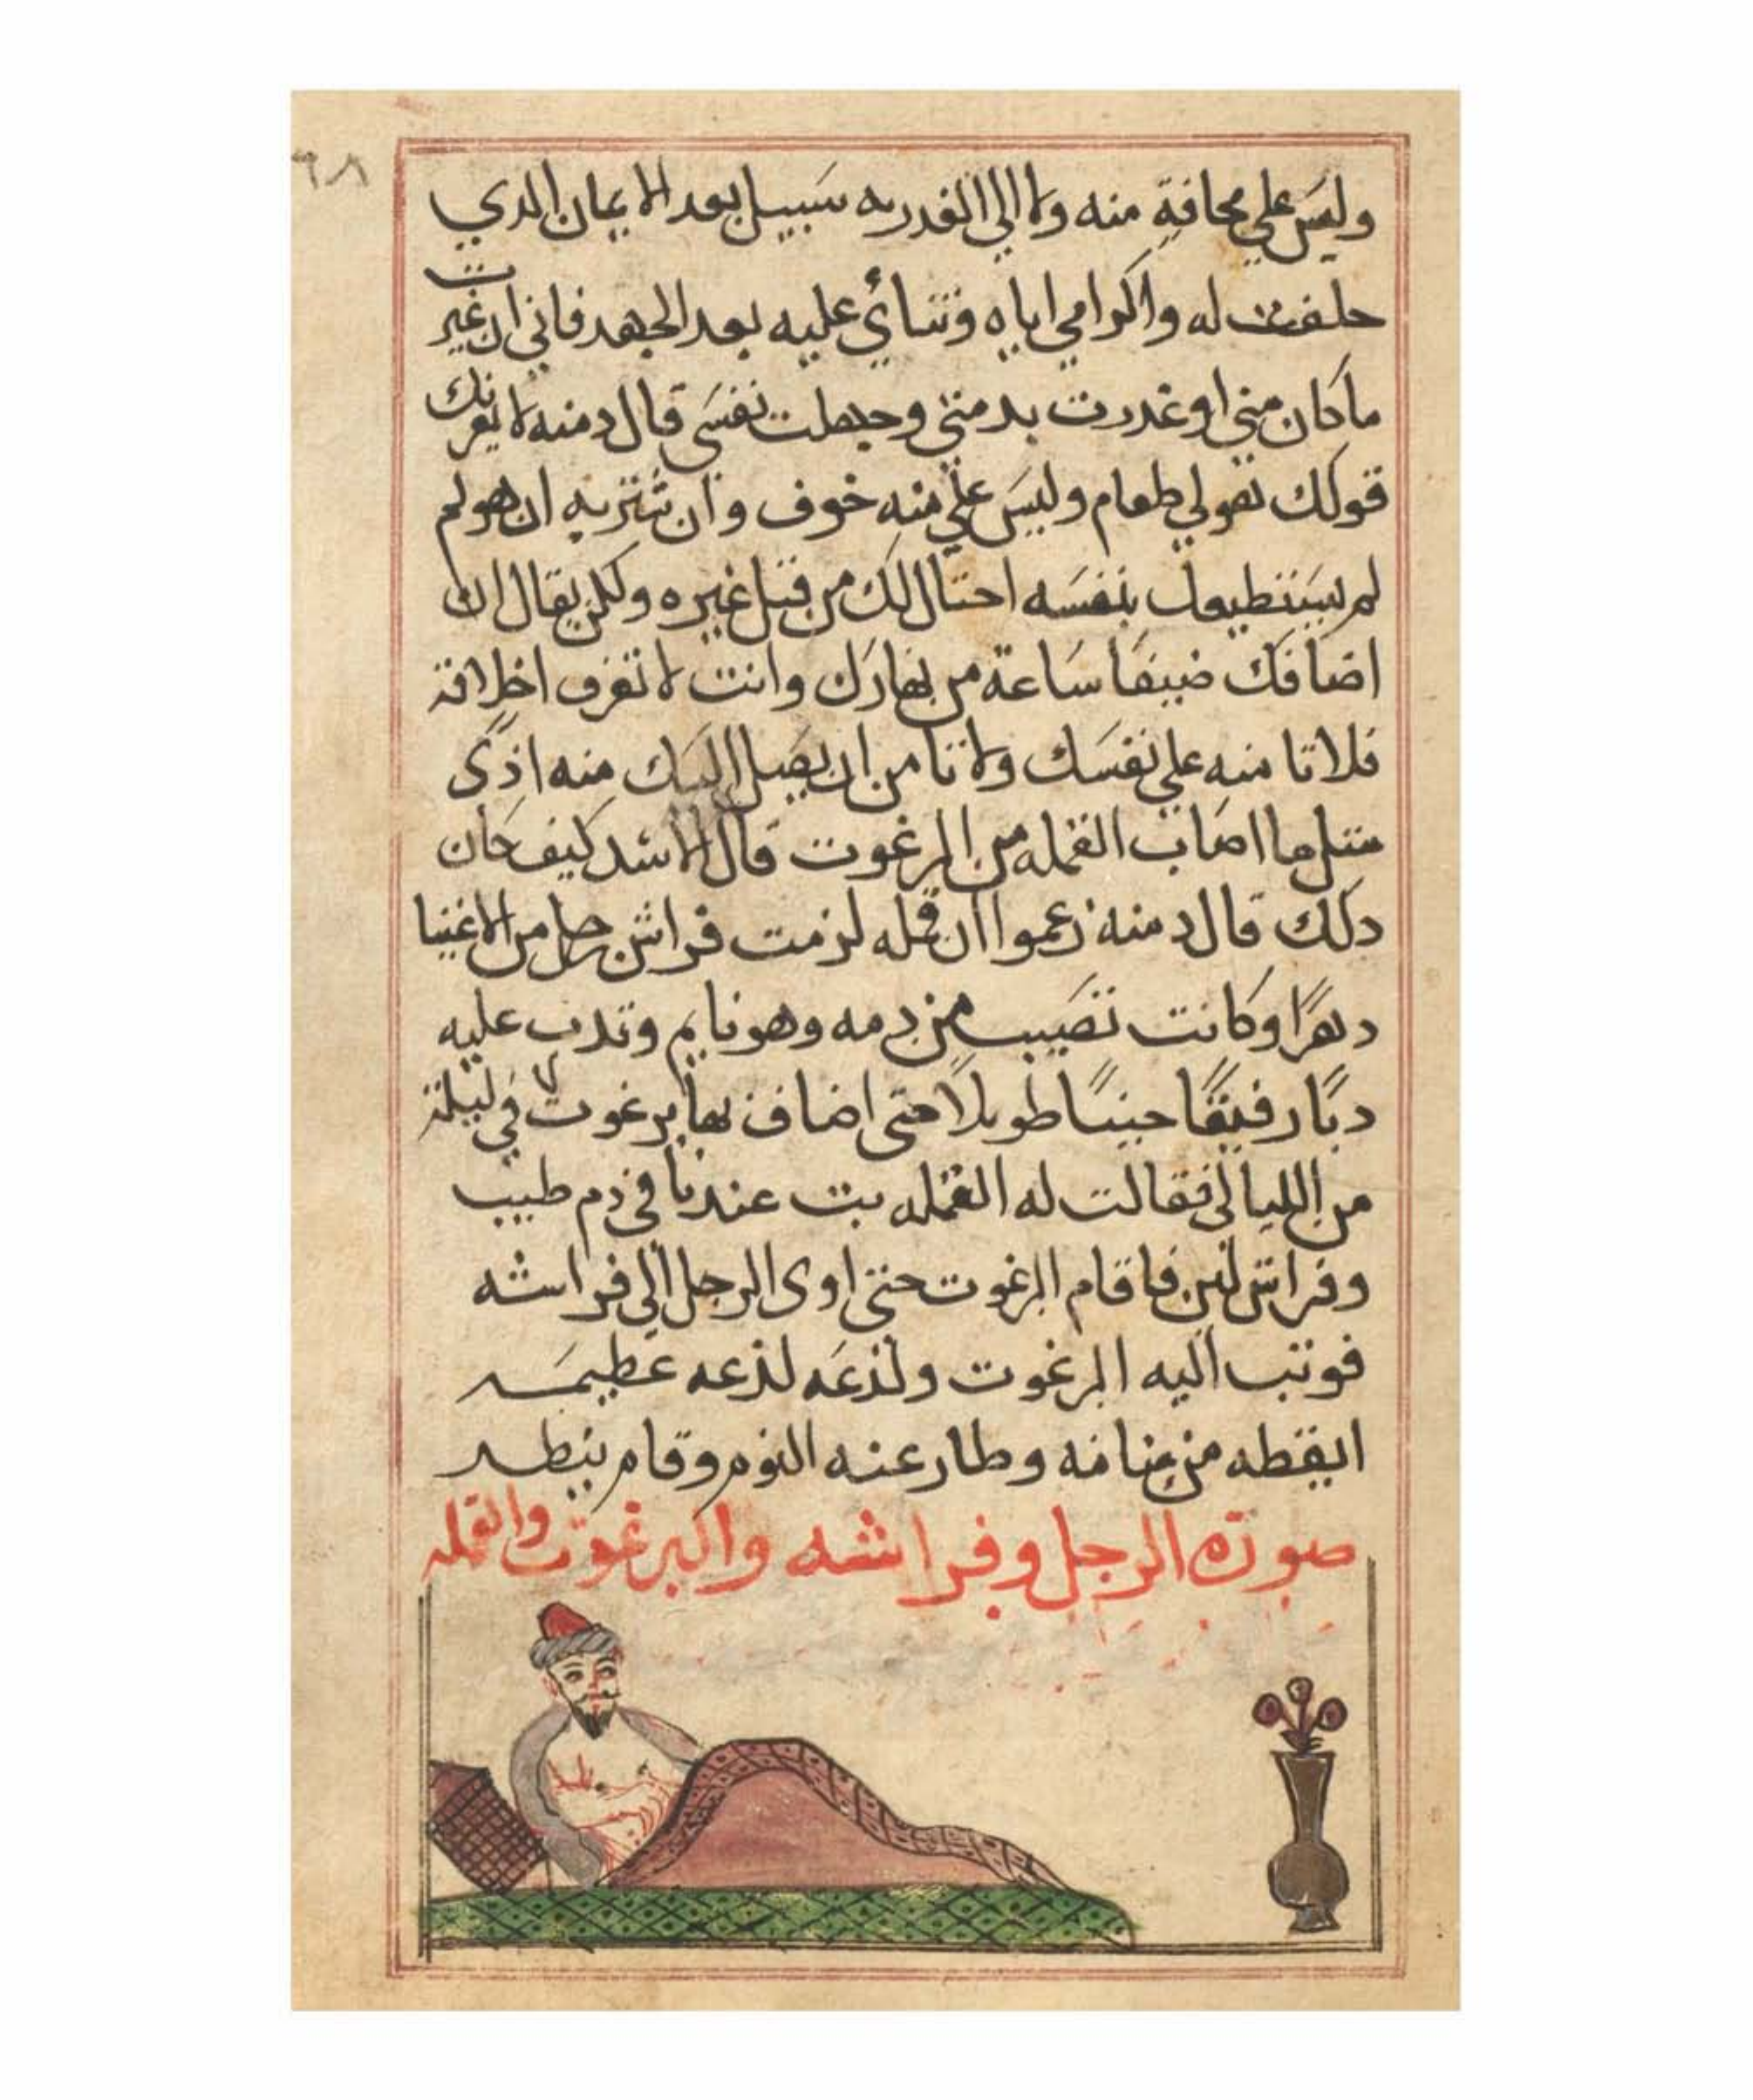 ٦٨
وليس علي مخافة منه ولا الي الغدر به سبيل بعد الايمان الدي
حلفت له واكرامي اياه وثنائي عليه بعد الجهد فاني ان غيرت
ماكان مني او غدرت بدمتي وجهلت نفسي قال دمنه لا يغرنك
قولك هو لي طعام وليس علي منه خوف وان شتربه ان هو لم
لم يستطيعك بنفسه احتال لك من قبل غيره ولكن يقال ان
اضافك ضيفا ساعة من نهارك وانت لا تعرف اخلاقة
فلا تامنه علي نفسك ولا تامن ان يصل اليك منه اذي
مثل ما اصاب القمله من البرغوت قال الاسد كيف كان
دلك قال دمنه زعموا ان قمله لزمت فراش رجل من الاغنيا
دهرًا وكانت تصيب من دمه وهو نايم وتدب عليه
دبًا رفيقًا حينًا طويلًا حتى اضاف بها برغوت في ليلة
من الليالي فقالت له القمله بت عندنا في دم طيب
وفراش لين فاقام البرغوت حتي اوى الرجل الي فراشه
فوتب اليه البرغوت ولذعه لذعه عظيمه
ايقظه من منامه وطار عنه النوم وقام ينظر
صورة الرجل وفراشه والبرغوت والقمله